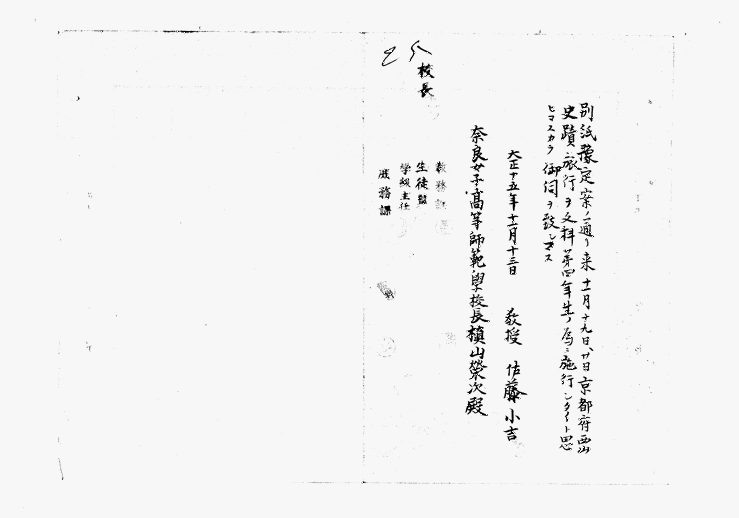 別紙豫定案ノ通リ来十一月十九日、廿日京都府西山
史蹟旅行ヲ文科第四年生ノ為ニ施行シタイト思
ヒマスカラ御伺ヲ致シマス
大正十五年十一月十三日 教授 佐藤小吉
奈良女子高等師範學校長槙山榮次殿
校長
教務課
生徒監
学級主任
庶務課